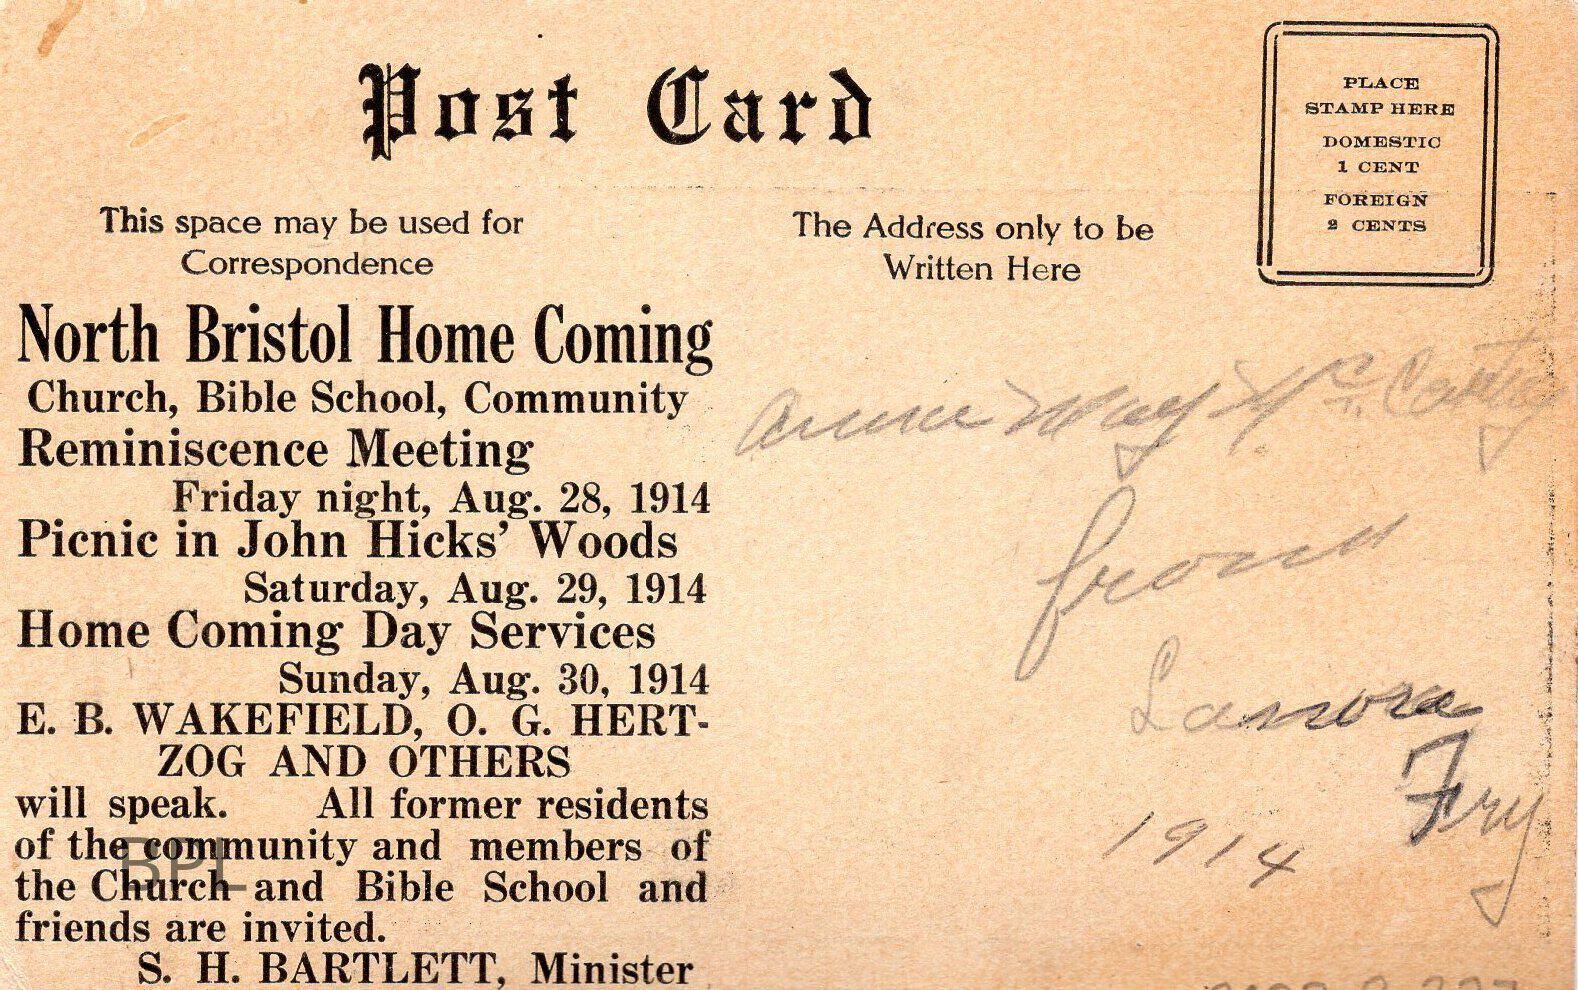 Post Card
PLACE
STAMP HERE
DOMESTIC
1 CENT
FOREIGN
2 CENTS
This space may be used for
Correspondence
The Address only to be
Written Here
North Bristol Home Coming
Church, Bible School, Community
Reminiscence Meeting
Friday night, Aug. 28, 1914
Picnic in John Hicks' Woods
Saturday, Aug. 29, 1914
Home Coming Day Services
Sunday, Aug. 30, 1914
E. B. WAKEFIELD, O. G. HERT-
ZOG AND OTHERS
will speak. All former residents
of the community and members of
the Church and Bible School and
friends are invited.
S. H. BARTLETT, Minister
BPL
Anna May
from
Lanora
Fry
1914